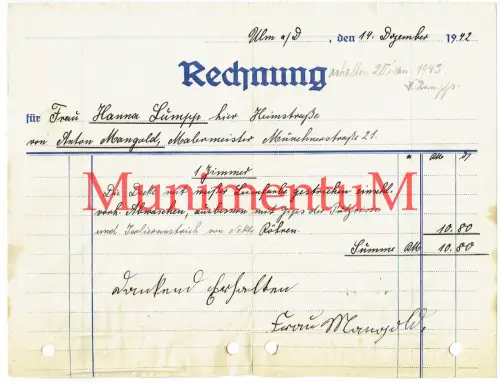 Ulm a/D, den 14. Dezember 1942
Rechnung
erhalten 20. Jan. 1943.
für Frau Hanna Lumpp hier Heimstraße
von Anton Mangold, Malermeister Münchnerstraße 21.
1 Zimmer
Die Decke mit weißer Leimfarbe gestrichen einschl.
vorh. Abwaschen, ausbessern mit Gips der
und Isolieranstrich von elektr. Röhren.
10.80
Summe RM 10.80
MunimentuM
dankend Erhalten
Frau Mangold.